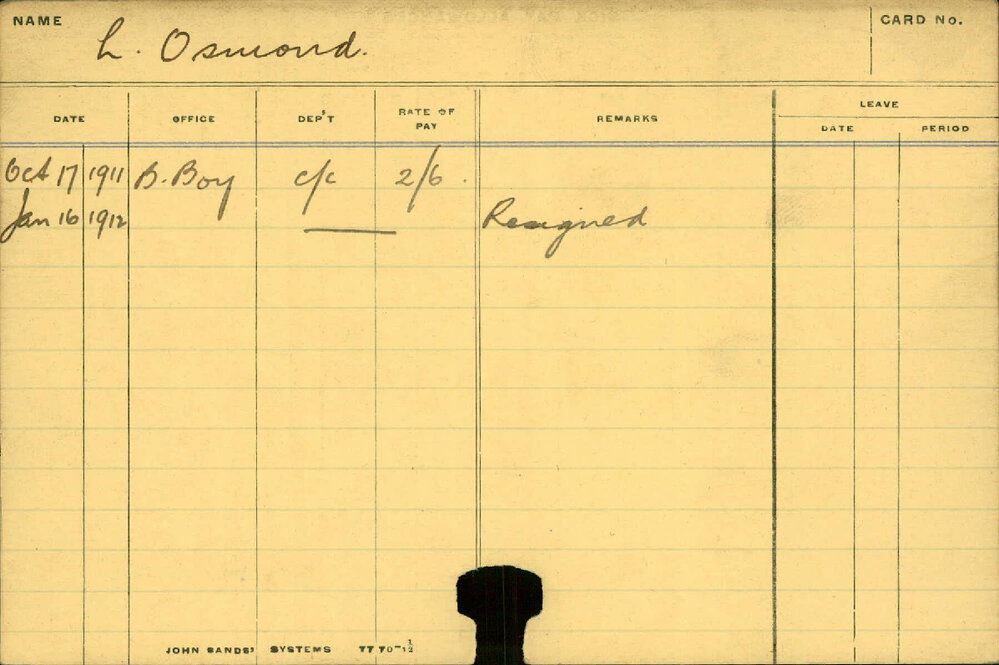 NAME L. Osmond. CARD No.
DATE OFFICE DEP'T RATE OF PAY REMARKS LEAVE
DATE PERIOD
Oct 17 1911 B. Boy c/c 2/6.
Jan 16 1912 Resigned
JOHN SANDS' SYSTEMS 7770-1/12